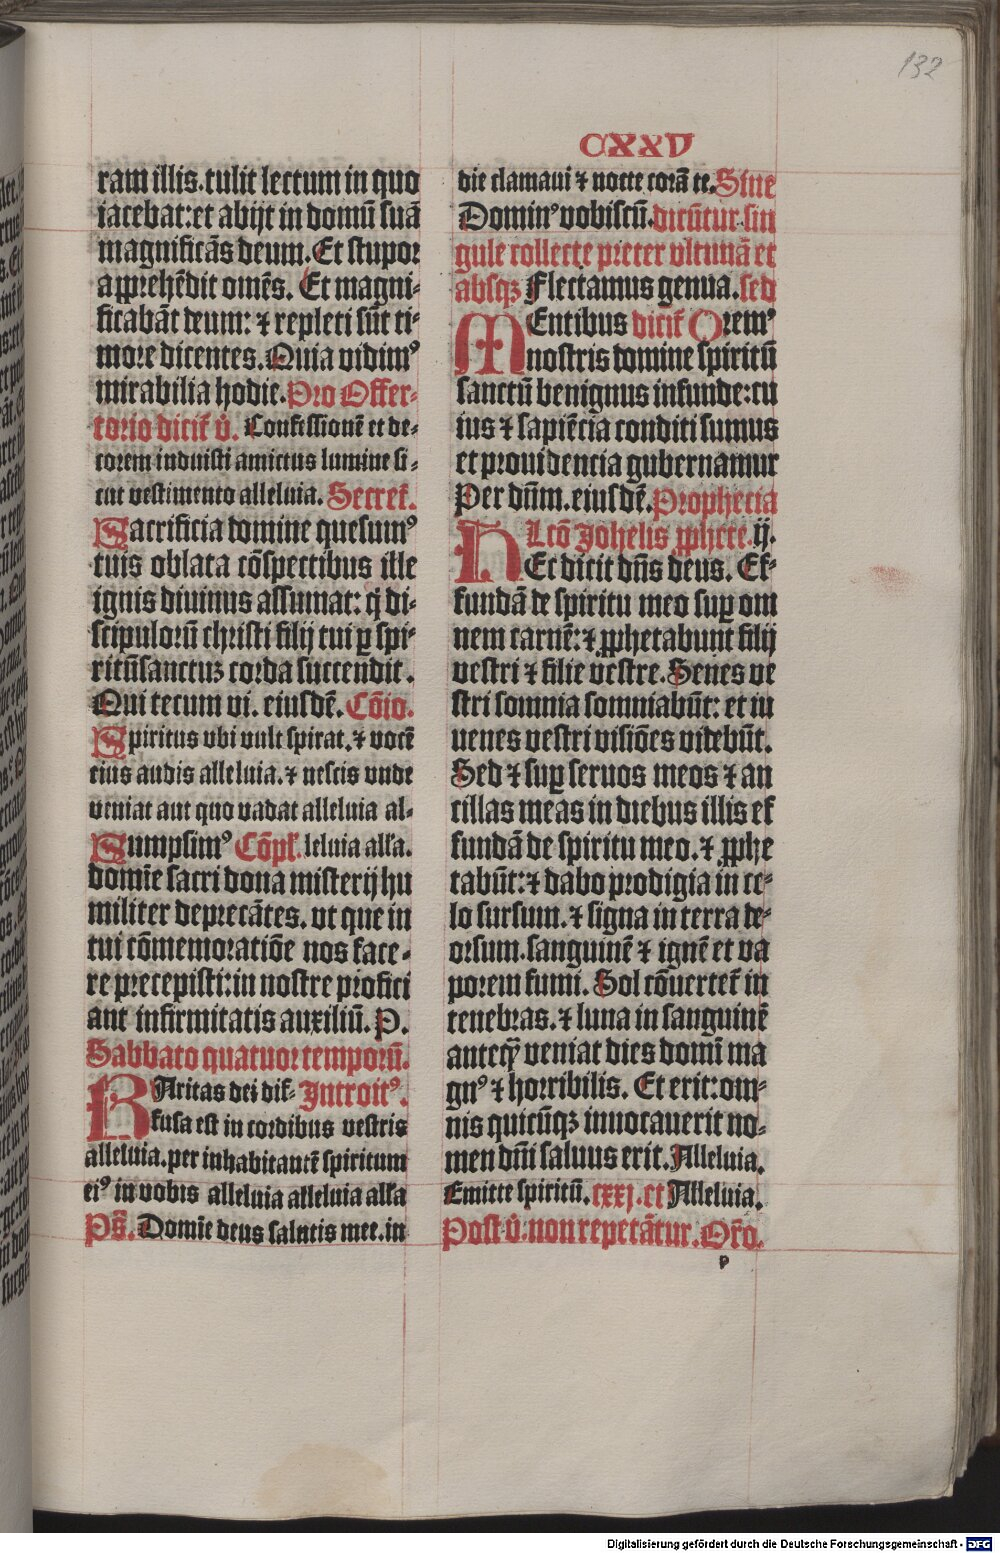 132
CXXV
ram illis. tulit lectum in quo
iacebat: et abijt in domū suā
magnificās deum. Et stupor
apprehēdit omēs. Et magni-
ficabāt deum: ⁊ repleti sūt ti-
more dicentes. Quia vidimꝰ
mirabilia hodie. Pro Offer-
torio dicit̄ v̄. Confessionē et de-
corem induisti amictus lumine si-
cut vestimento alleluia. Secret̄.
Sacrificia domine quesumꝰ
tuis oblata cōspectibus ille
ignis diuinus assumat: q̄ di-
scipulorū christi filij tui ꝑ spi-
ritūsanctuꝫ corda succendit.
Qui tecum vi. eiusdē. Cōio.
Spiritus vbi vult spirat. ⁊ vocē
eius audis alleluia. ⁊ nescis vnde
veniat aut quo vadat alleluia al-
Sumpsimꝰ Cōpl̄. leluia all̄a.
domīe sacri dona misterij hu
militer deprecātes. vt que in
tui cōmemoratiōe nos face-
re precepisti: in nostre profici
ant infirmitatis auxiliū. P.
Sabbato quatuor temporū.
KAritas dei dif- Introitꝰ.
fusa est in cordibus vestris
alleluia. per inhabitantē spiritum
eiꝰ in vobis alleluia alleluia all̄a
Ps̄. Domīe deus salutis mee. in
die clamaui ⁊ nocte corā te. Siue
Dominꝰ vobiscū. dicūtur. sin
gule collecte preter vltimā et
absqꝫ Flectamus genua. sed
MEntibus dicit̄ Oremꝰ
nostris domine spiritū
sanctū benignus infunde: cu
ius ⁊ sapiētia conditi sumus
et prouidentia gubernamur
Per dn̄m. eiusdē. Prophecia
Lc̄o Johelis ꝓphete. ij.
HEc dicit dn̄s deus. Ef-
fundā de spiritu meo suꝑ om
nem carnē: ⁊ ꝓphetabunt filij
vestri ⁊ filie vestre. Senes ve
stri somnia somniabūt: et iu
uenes vestri visiōes videbūt.
Sed ⁊ suꝑ seruos meos ⁊ an
cillas meas in diebus illis ef
fundā de spiritu meo. ⁊ ꝓphe
tabūt: ⁊ dabo prodigia in ce-
lo sursum. ⁊ signa in terra de-
orsum. sanguinē ⁊ ignē et va
porem fumi. Sol cōuertet̄ in
tenebras. ⁊ luna in sanguinē
anteq̄ veniat dies domī ma
gnꝰ ⁊ horribilis. Et erit: om-
nis quicūqꝫ inuocauerit no-
men dn̄i saluus erit. Alleluia.
Emitte spiritū. cxxj. et Alleluia.
Post v̄. non repetātur. Or̄o.
p
Digitalisierung gefördert durch die Deutsche Forschungsgemeinschaft - DFG